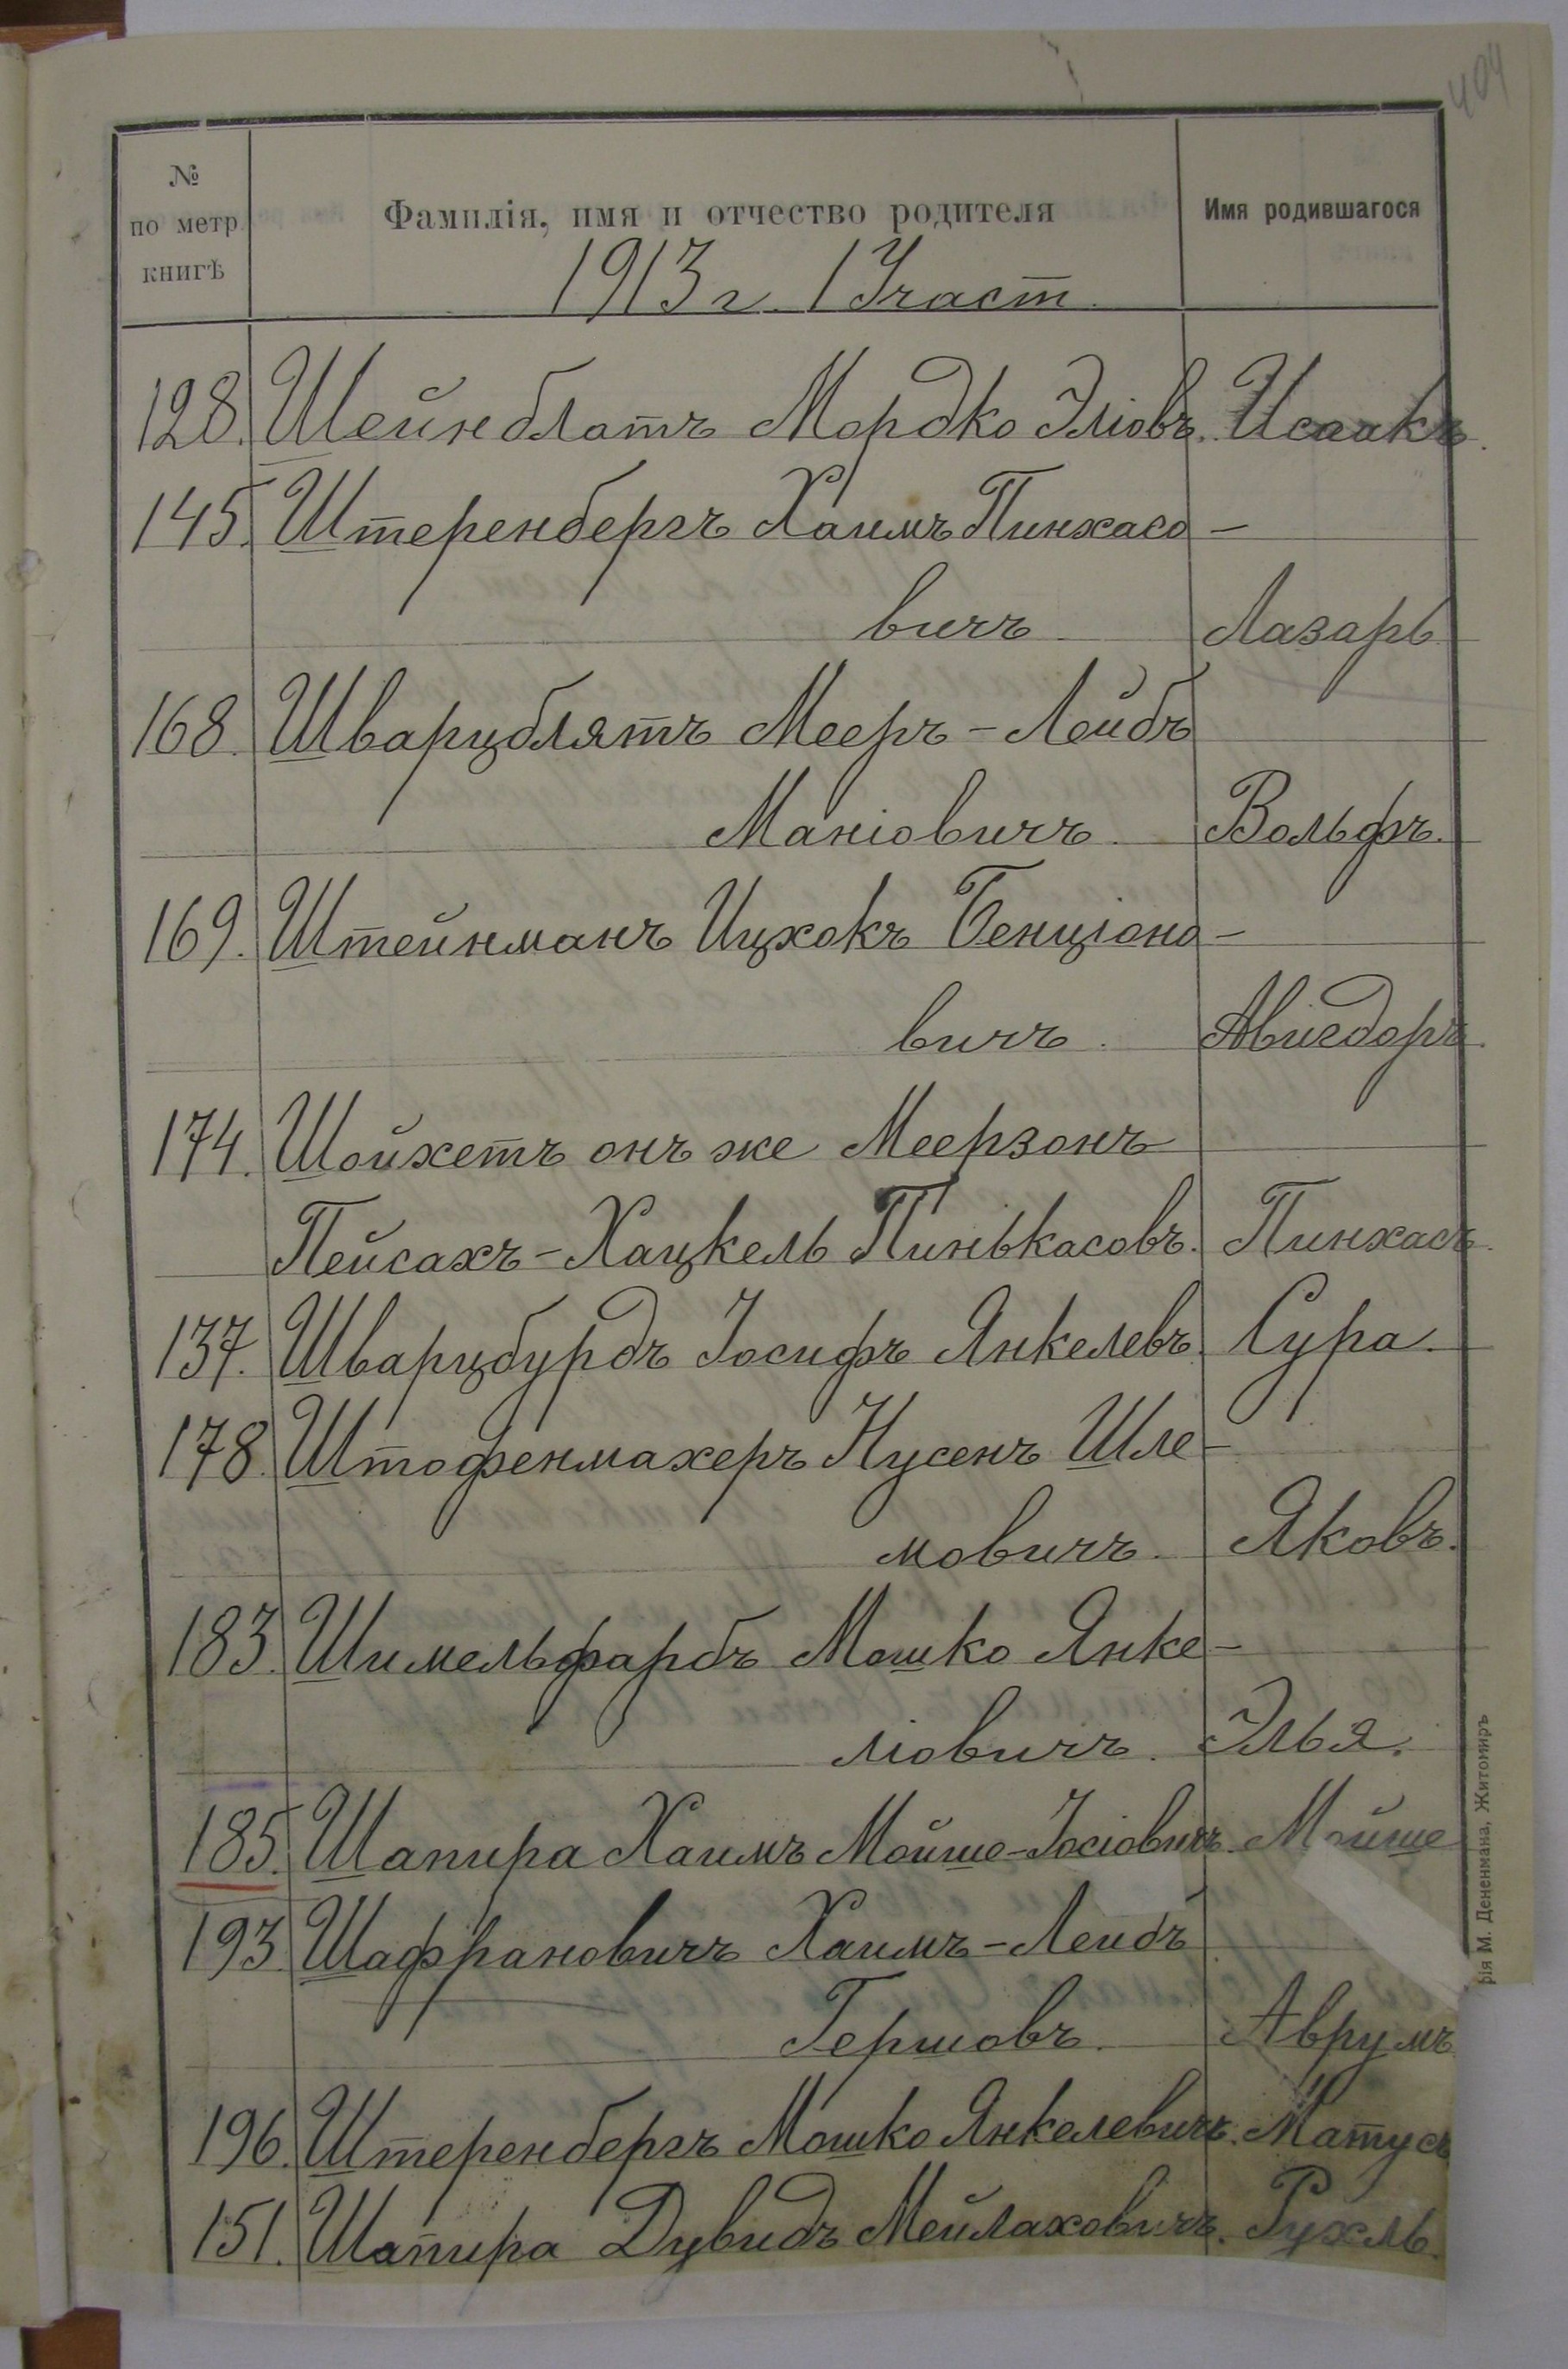 404
№
по метр
книгѣ
Фамилія, имя и отчество родителя
Имя родившагося
1913 г. 1 Участ.
128. Шейнблатъ Мордко Эліовъ. Исаакъ.
145. Штеренбергъ Хаимъ Пинхасо-
вичъ Лазарь
168. Шварцблятъ Мееръ-Лейбъ
Маніовичъ. Вольфъ.
169. Штейнманъ Ицхокъ Бенціоно-
вичъ. Авигдоръ.
174. Шойхетъ онъ же Меерзонъ
Пейсахъ-Хацкель Пинькасовъ. Пинхасъ.
137. Шварцбурдъ Іосифъ Янкелевъ. Сура.
178. Штофенмахеръ Нусенъ Шле-
мовичъ. Яковъ.
183. Шимельфарбъ Мошко Янке-
ліовичъ. Элья.
185. Шапира Хаимъ Мойше-Іосіовичъ. Мойше
193. Шафрановичъ Хаимъ-Лейбъ
Гершовъ. Аврумъ
196. Штеренбергъ Мошко Янкелевичъ. Матусъ
151. Шапира Дувидъ Мейлаховичъ. Рухль.
рія М. Дененмана, Житомиръ